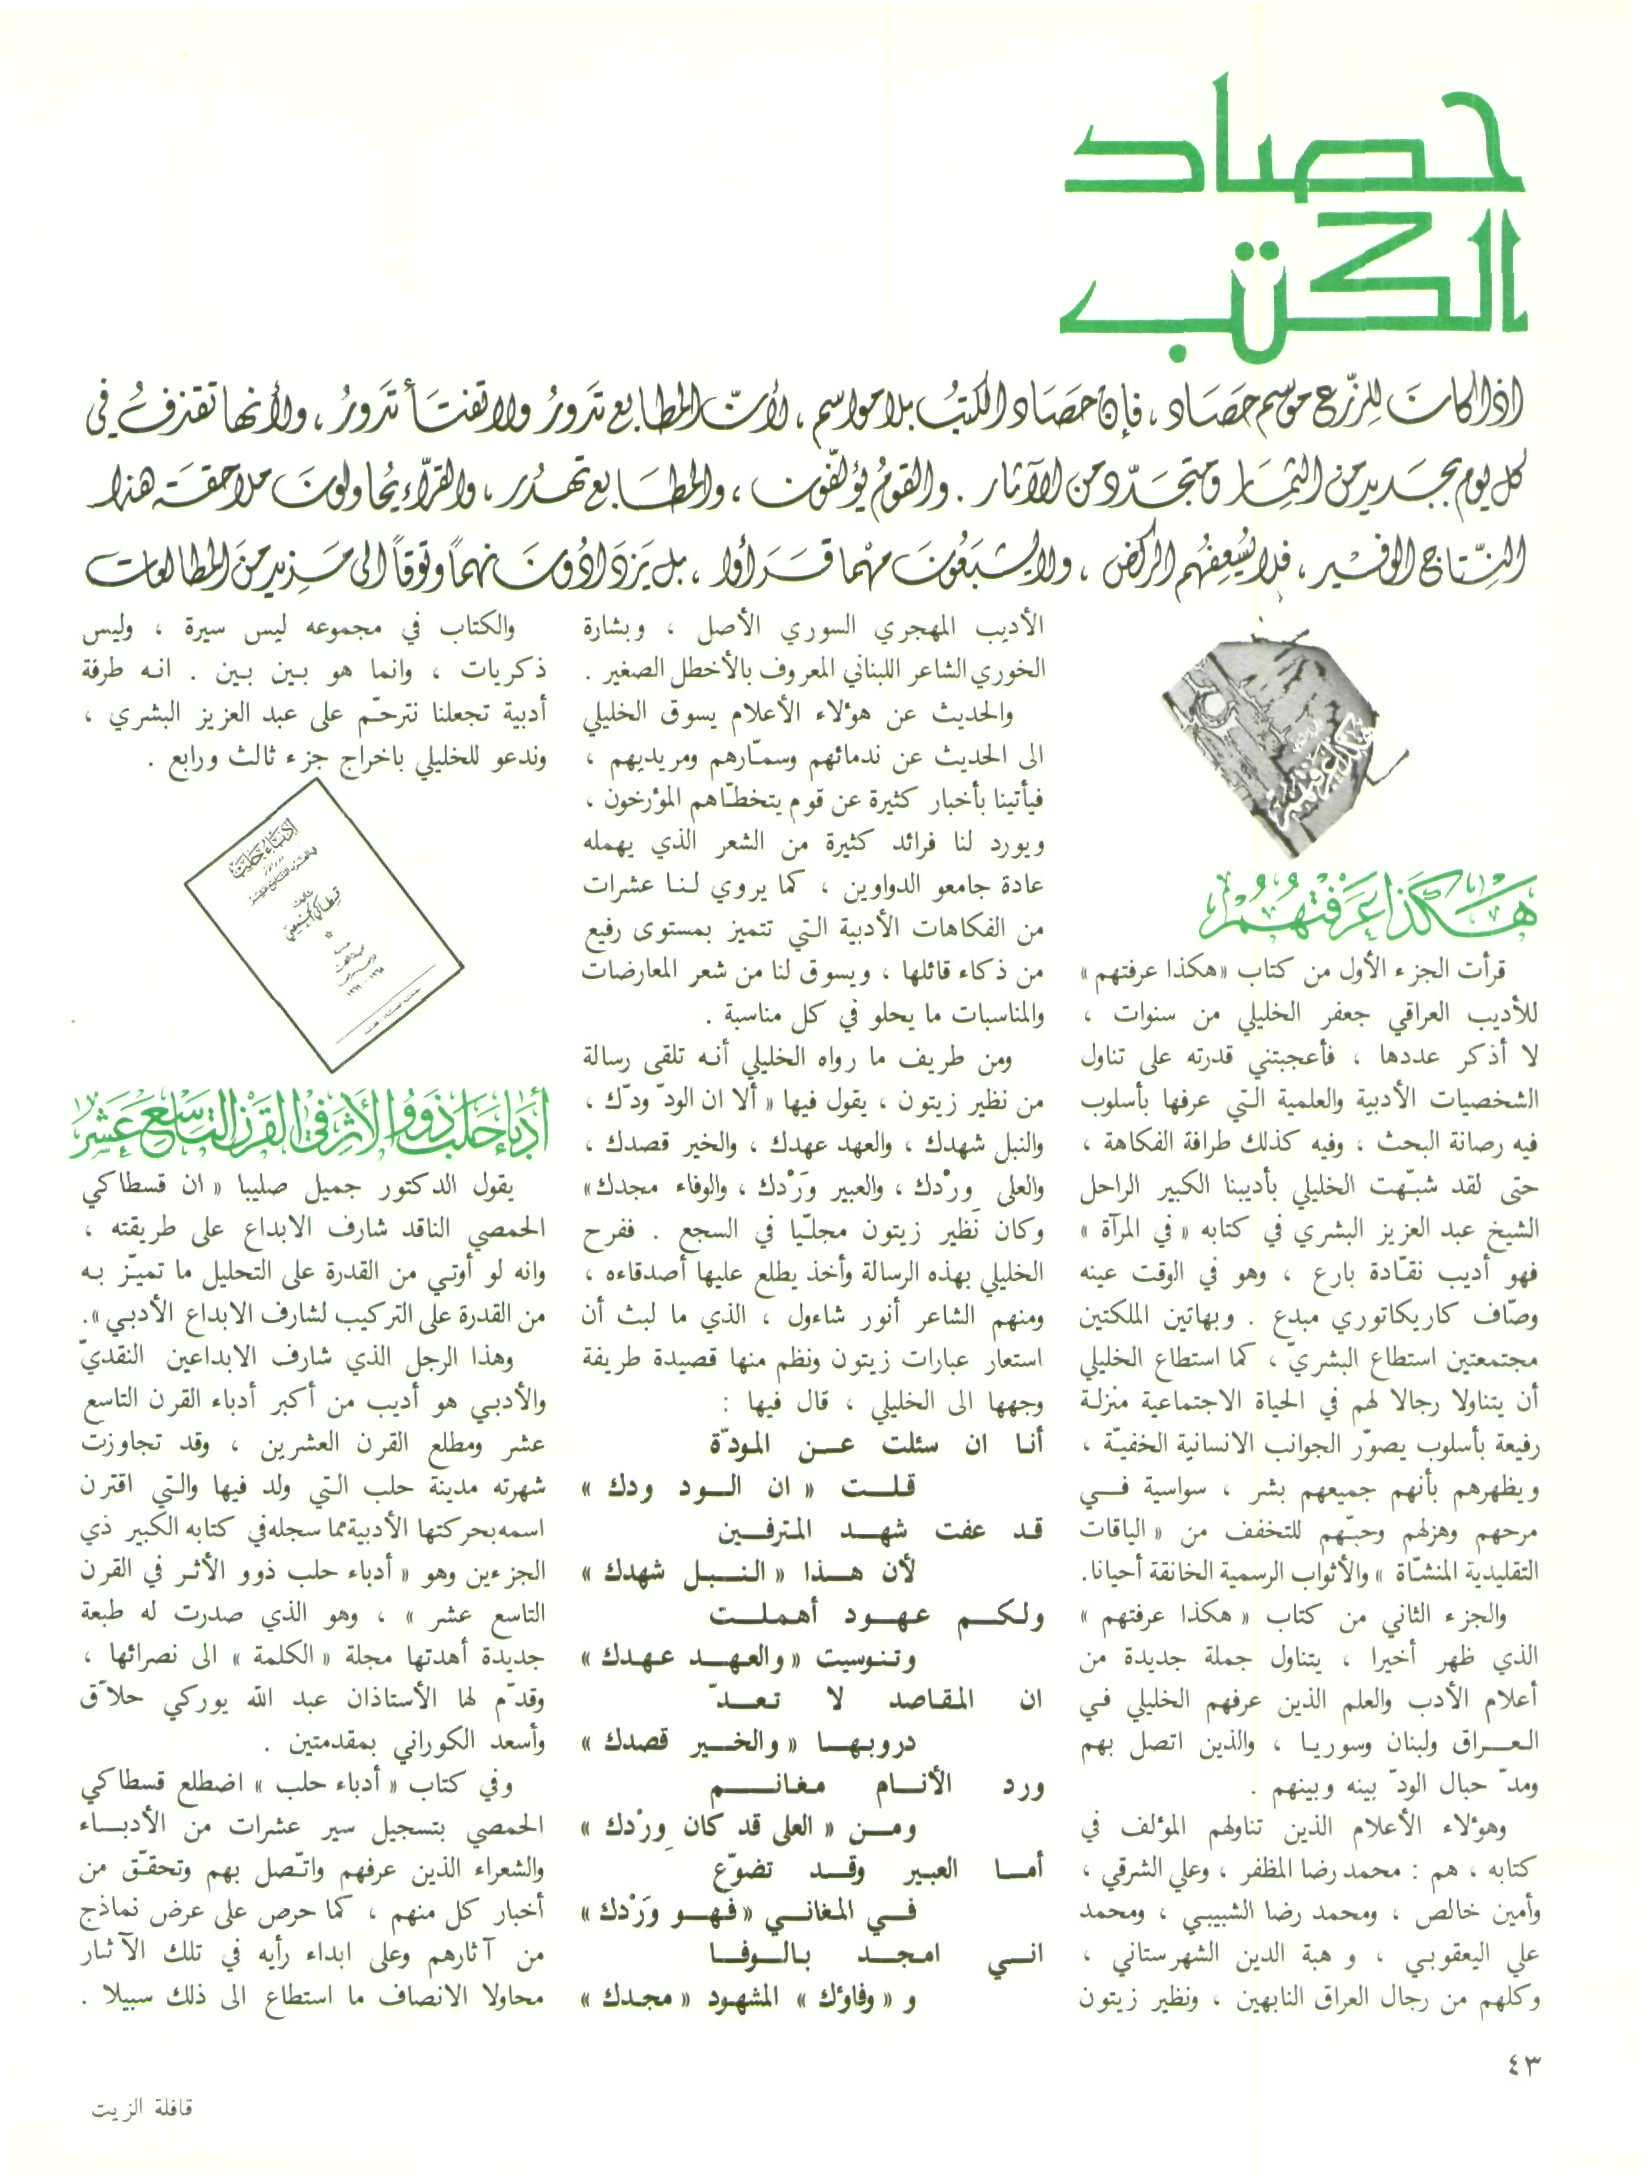 حصاد
الكتب
اذا كانت للزّرع موسم حصاد ، فإن حصاد الكتب بلا مواسم ، لأنّ المطابع تدور ولا تفتأ تدور ، ولأنها تقذف في
كل يوم بجديد من الثمار ومتجدّد من الآثار . والقوم يؤلّفون ، والمطابع تهدر ، والقرّاء يحاولون ملاحقة هذا
النّتاج الوفير ، فلا يسعفهم الركض ، ولا يشبعون مهما قرأوا ، بل يزدادون نهماً وتوقاً الى مزيد من المطالعات
هكذا عرفتهم
هَكَذا عَرَفتهُم
قرأت الجزء الأول من كتاب «هكذا عرفتهم»
للأديب العراقي جعفر الخليلي من سنوات ،
لا أذكر عددها ، فأعجبتني قدرته على تناول
الشخصيات الأدبية والعلمية التي عرفها بأسلوب
فيه رصانة البحث ، وفيه كذلك طرافة الفكاهة ،
حتى لقد شبّهت الخليلي بأديبنا الكبير الراحل
الشيخ عبد العزيز البشري في كتابه « في المرآة »
فهو أديب نقّادة بارع ، وهو في الوقت عينه
وصّاف كاريكاتوري مبدع . وبهاتين الملكتين
مجتمعتين استطاع البشريّ ، كما استطاع الخليلي
أن يتناولا رجالا لهم في الحياة الاجتماعية منزلة
رفيعة بأسلوب يصوّر الجوانب الانسانية الخفيّة ،
ويظهرهم بأنهم جميعهم بشر ، سواسية في
مرحهم وهزلهم وحبّهم للتخفف من « الياقات
التقليدية المنشّاة » والأثواب الرسمية الخانقة أحيانا.
والجزء الثاني من كتاب « هكذا عرفتهم »
الذي ظهر أخيرا ، يتناول جملة جديدة من
أعلام الأدب والعلم الذين عرفهم الخليلي في
العراق ولبنان وسوريا ، والذين اتصل بهم
ومدّ حبال الودّ بينه وبينهم .
وهؤلاء الأعلام الذين تناولهم المؤلف في
كتابه ، هم : محمد رضا المظفر ، وعلي الشرقي ،
وأمين خالص ، ومحمد رضا الشبيبي ، ومحمد
علي اليعقوبي ، و هبة الدين الشهرستاني ،
وكلهم من رجال العراق النابهين ، ونظير زيتون
الأديب المهجري السوري الأصل ، وبشارة
الخوري الشاعر اللبناني المعروف بالأخطل الصغير .
والحديث عن هؤلاء الأعلام يسوق الخليلي
الى الحديث عن ندمائهم وسمّارهم ومريديهم ،
فيأتينا بأخبار كثيرة عن قوم يتخطّاهم المؤرخون ،
ويورد لنا فرائد كثيرة من الشعر الذي يهمله
عادة جامعو الدواوين ، كما يروي لنا عشرات
من الفكاهات الأدبية التي تتميز بمستوى رفيع
من ذكاء قائلها ، ويسوق لنا من شعر المعارضات
والمناسبات ما يحلو في كل مناسبة .
ومن طريف ما رواه الخليلي أنه تلقى رسالة
من نظير زيتون ، يقول فيها « ألا ان الودّ ودّك ،
والنبل شهدك ، والعهد عهدك ، والخير قصدك ،
والعلى وِرْدك ، والعبير وَرْدك ، والوفاء مجدك»
وكان نظير زيتون مجلّيا في السجع . ففرح
الخليلي بهذه الرسالة وأخذ يطلع عليها أصدقاءه ،
ومنهم الشاعر أنور شاءول ، الذي ما لبث أن
استعار عبارات زيتون ونظم منها قصيدة طريفة
وجهها الى الخليلي ، قال فيها :
أنا ان سئلت عن المودّة
قلت « ان الود ودك »
قد عفت شهد المترفين
لأن هذا « النبل شهدك »
ولكم عهود أهملت
وتنوسيت «والعهد عهدك »
ان المقاصد لا تعدّ
دروبها « والخير قصدك »
ورد الأنام مغانم
ومن « العلى قد كان وِرْدك »
أما العبير وقد تضوّع
في المغاني «فهو وَرْدك »
اني امجد بالوفا
و « وفاؤك » المشهود « مجدك »
والكتاب في مجموعه ليس سيرة ، وليس
ذكريات ، وانما هو بين بين . انه طرفة
أدبية تجعلنا نترحّم على عبد العزيز البشري ،
وندعو للخليلي باخراج جزء ثالث ورابع .
أدباء حلب
قسطاكي الحمصي
أدباء حلب ذوو الأثر في القرن التاسع عشر
يقول الدكتور جميل صليبا « ان قسطاكي
الحمصي الناقد شارف الابداع على طريقته ،
وانه لو أوتي من القدرة على التحليل ما تميّز به
من القدرة على التركيب لشارف الابداع الأدبي ».
وهذا الرجل الذي شارف الابداعين النقديّ
والأدبي هو أديب من أكبر أدباء القرن التاسع
عشر ومطلع القرن العشرين ، وقد تجاوزت
شهرته مدينة حلب التي ولد فيها والتي اقترن
اسمه بحركتها الأدبية مما سجله في كتابه الكبير ذي
الجزءين وهو « أدباء حلب ذوو الأثر في القرن
التاسع عشر » ، وهو الذي صدرت له طبعة
جديدة أهدتها مجلة « الكلمة » الى نصرائها ،
وقدّم لها الأستاذان عبد الله يوركي حلاّق
وأسعد الكوراني بمقدمتين .
وفي كتاب « أدباء حلب » اضطلع قسطاكي
الحمصي بتسجيل سير عشرات من الأدباء
والشعراء الذين عرفهم واتّصل بهم وتحقّق من
أخبار كل منهم ، كما حرص على عرض نماذج
من آثارهم وعلى ابداء رأيه في تلك الآثار
محاولا الانصاف ما استطاع الى ذلك سبيلا .
٤٣
قافلة الزيت